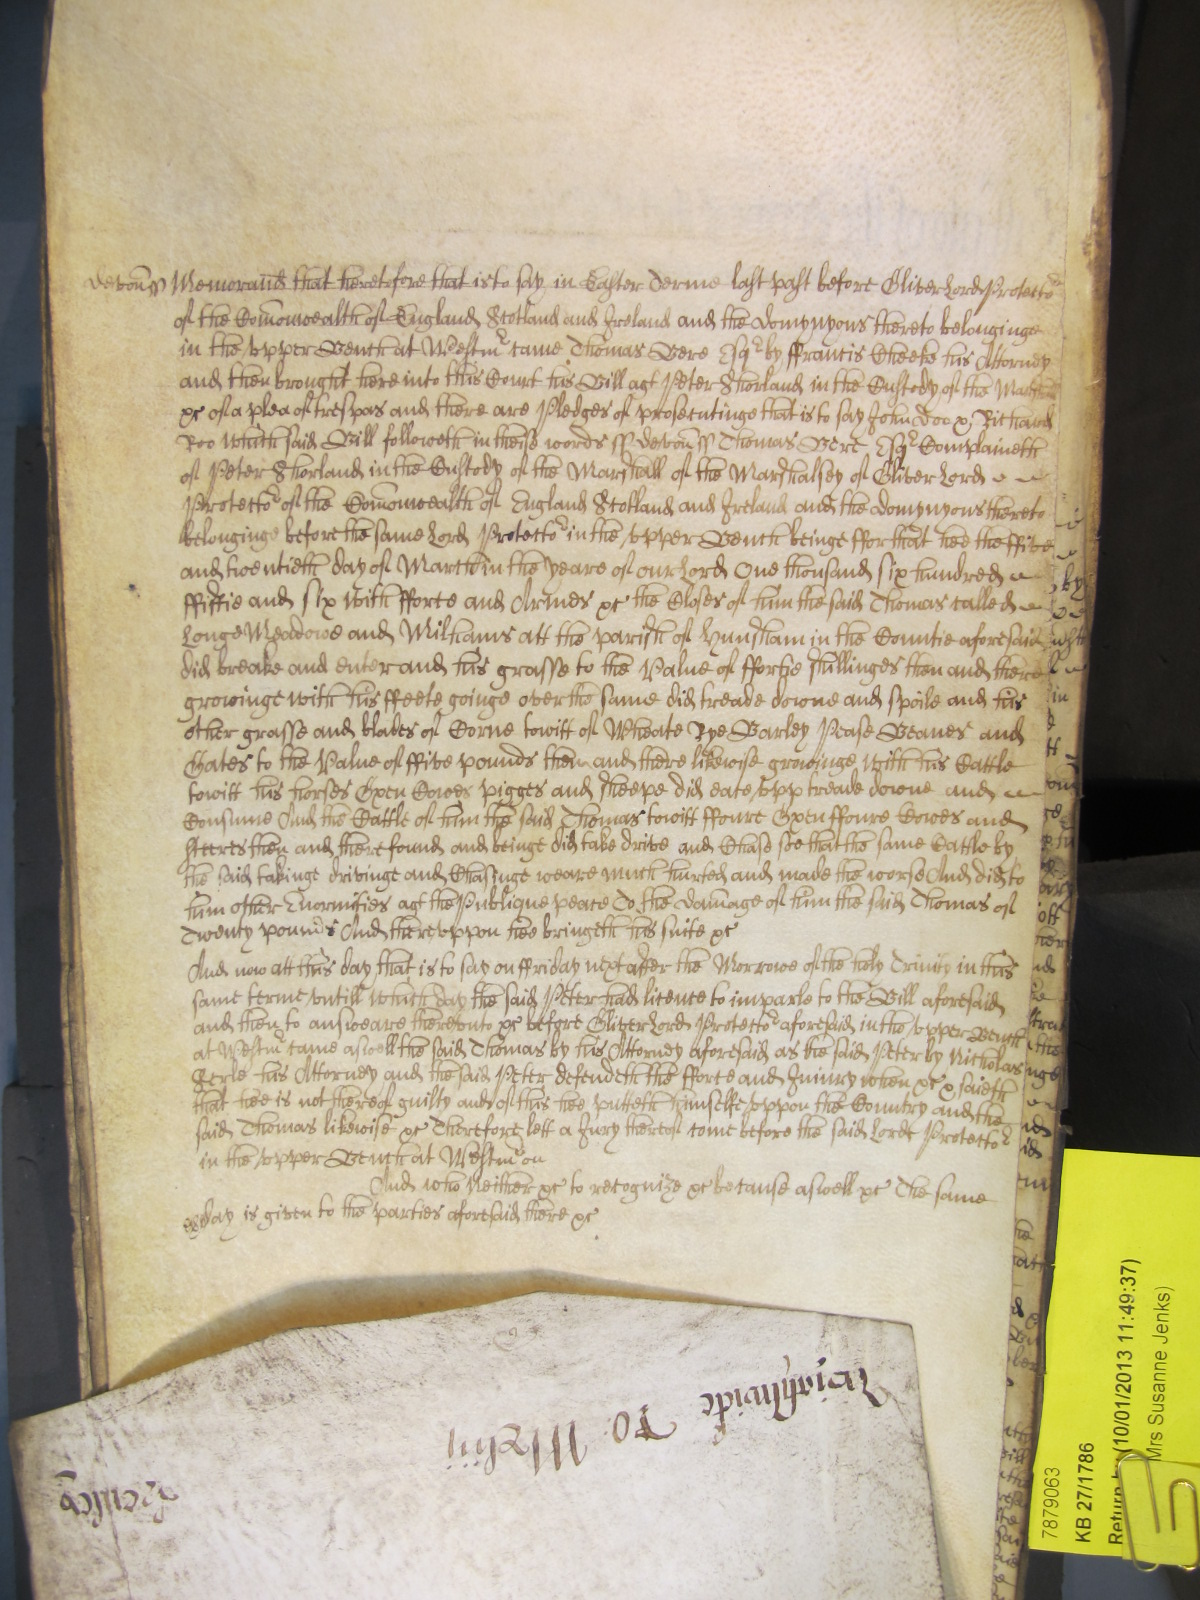 Devon ss Memorand that heretofore that is to say in Easter Terme last past before Oliver Lord Protector
of the Comonwealth of England Scotland and Ireland and the domynyons thereto belonginge
in the upper Bench at Westmr came Thomas Bere Esqr by ffrancis Cheeke his Attorney
and then brought here into this Court his Bill agt Peter Shorland in the Custody of the Marshall
xc of a plea of trespas and there are Pledges of prosecutinge that is to say John Doo & Richard
Roo Which said Bill followeth in theise words ss Devon ss Thomas Bere Esqr Complaineth
of Peter Shorland in the Custody of the Marshall of the Marshalsey of Oliver Lord
Protector of the Comonwealth of England Scotland and Ireland and the domynyons thereto
belonginge before the same Lord Protector in the upper Bench beinge ffor that hee the ffive
and twentieth day of March in the yeare of our Lord One thousand six hundred
ffiftie and six with fforce and Armes xc the Closes of him the said Thomas called
Longe Meadowe and Milhams att the parish of Hunsham in the Countie aforesaid
did breake and enter and his grasse to the value of ffortie shillinges then and there
growinge with his ffeete goinge over the same did treade downe and spoile and his
other grasse and blades of Corne towitt of Wheate Rye Barley Pease Beanes and
Oates to the value of ffive pounds then and there likewise growinge with his Cattle
towitt his horses Oxen Cowes pigges and sheepe did eate upp treade downe and
Consume And the Cattle of him the said Thomas towitt ffoure Oxen ffoure Cowes and
steeres then and there found and beinge did take drive and Chase soe that the same Cattle by
the said takinge drivinge and Chasinge weare much hurted and made the worse And did to
him other Enormities agt the Publique peace To the damage of him the said Thomas of
Twenty pounds And thereuppon hee bringeth his suite xc
And now att this day that is to say on ffriday next after the Morrowe of the holy Trinity in this
same terme untill which day the said Peter had licence to imparle to the Bill aforesaid
and then to answeare thereunto xc before Oliver Lord Protector aforesaid in the upper Bench
at Westmr came aswell the said Thomas by his Attorney aforesaid as the said Peter by Nicholas
his Attorney and the said Peter defendeth the fforce and Iniury when xc & saieth
that hee is not thereof guilty and of this hee putteth himselfe uppon the Country and the
said Thomas likewise xc Therefore lett a Jury thereof come before the said Lord Protector
in the upper Bench at Westmr on
And who Neither xc to recognize xc because aswell xc The same
day is given to the parties aforesaid there xc
To
7879063
KB 27/1786
Return by (10/01/2013 11:49:37)
Mrs Susanne Jenks)